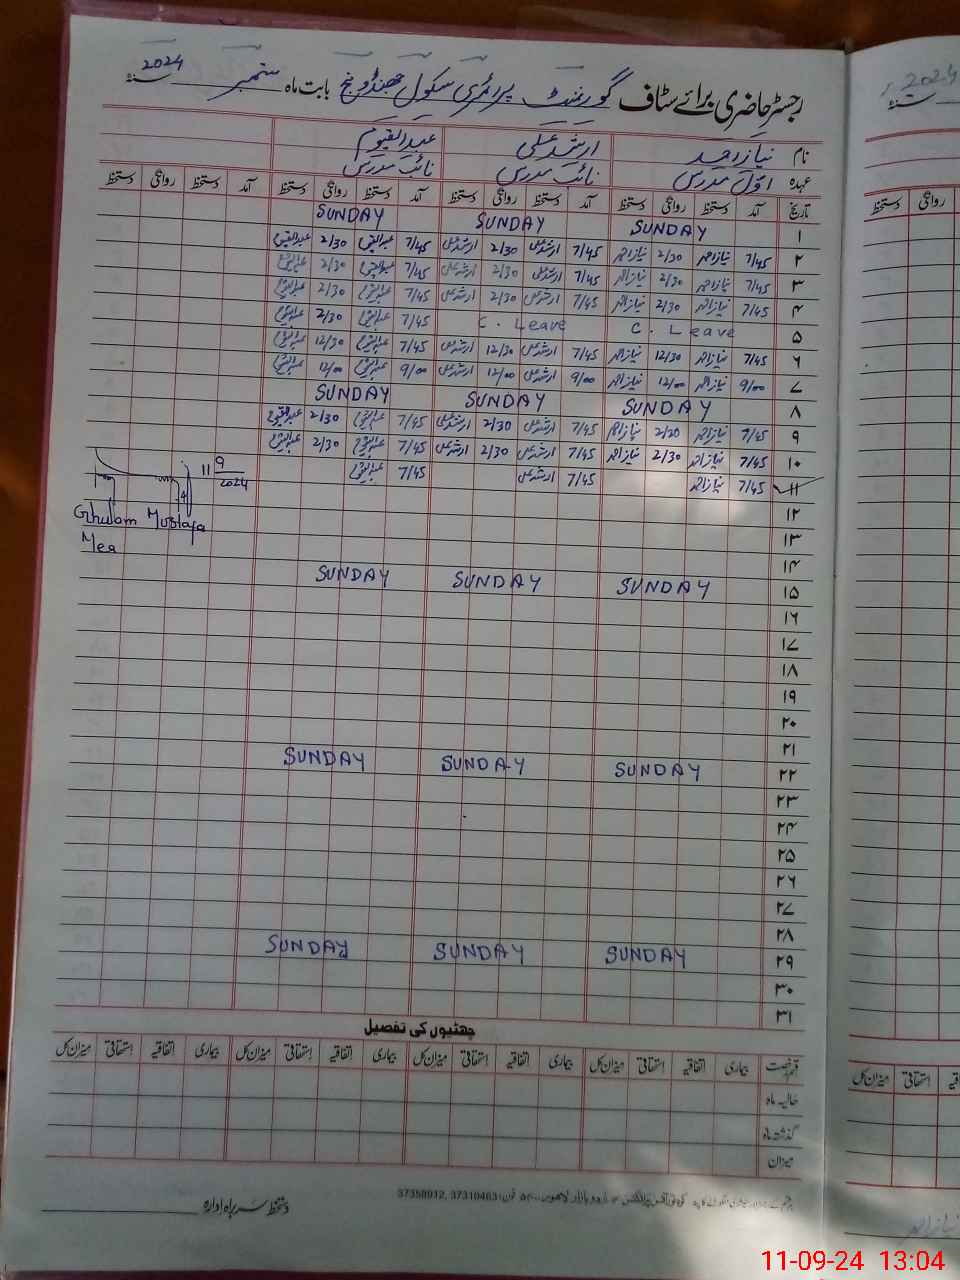 رجسٹر حاضری برائے سٹاف گورنمنٹ پرائمری سکول بابت ماہ ستمبر سنہ 2024
نام نیاز احمد ارشد علی عبدالقیوم
عہدہ اول مدرس نائب مدرس نائب مدرس
تاریخ آمد دستخط روانگی دستخط آمد دستخط روانگی دستخط آمد دستخط روانگی دستخط آمد دستخط روانگی دستخط
۱ SUNDAY SUNDAY SUNDAY
۲ 7/45 نیاز احمد 2/30 نیاز احمد 7/45 ارشد علی 2/30 ارشد علی 7/45 عبدالقیوم 2/30 عبدالقیوم
۳ 7/45 نیاز احمد 2/30 نیاز احمد 7/45 ارشد علی 2/30 ارشد علی 7/45 عبدالقیوم 2/30 عبدالقیوم
۴ 7/45 نیاز احمد 2/30 نیاز احمد 7/45 ارشد علی 2/30 ارشد علی 7/45 عبدالقیوم 2/30 عبدالقیوم
۵ C. Leave C. Leave 7/45 عبدالقیوم 2/30 عبدالقیوم
۶ 7/45 نیاز احمد 12/30 نیاز احمد 7/45 ارشد علی 12/30 ارشد علی 7/45 عبدالقیوم 12/30 عبدالقیوم
۷ 9/00 نیاز احمد 12/00 نیاز احمد 9/00 ارشد علی 12/00 ارشد علی 9/00 عبدالقیوم 12/00 عبدالقیوم
۸ SUNDAY SUNDAY SUNDAY
۹ 7/45 نیاز احمد 2/30 نیاز احمد 7/45 ارشد علی 2/30 ارشد علی 7/45 عبدالقیوم 2/30 عبدالقیوم
۱۰ 7/45 نیاز احمد 2/30 نیاز احمد 7/45 ارشد علی 2/30 ارشد علی 7/45 عبدالقیوم 2/30 عبدالقیوم
۱۱ 7/45 نیاز احمد 7/45 ارشد علی 7/45 عبدالقیوم
11 9
2024
Ghulam Mustafa
Mea
۱۲
۱۳
۱۴
۱۵ SUNDAY SUNDAY SUNDAY
۱۶
۱۷
۱۸
۱۹
۲۰
۲۱
۲۲ SUNDAY SUNDAY SUNDAY
۲۳
۲۴
۲۵
۲۶
۲۷
۲۸
۲۹ SUNDAY SUNDAY SUNDAY
۳۰
۳۱
چھٹیوں کی تفصیل
قسم رخصت بیماری اتفاقیہ استحقاقی میزان کل بیماری اتفاقیہ استحقاقی میزان کل بیماری اتفاقیہ استحقاقی میزان کل بیماری اتفاقیہ استحقاقی میزان کل
حالیہ ماہ
گذشتہ ماہ
میزان
اردو بازار لاہور فون: 37310463, 37358012
دستخط سربراہ ادارہ
سنہ 2024
روانگی دستخط
استحقاقی میزان کل
نیاز احمد
11-09-24 13:04